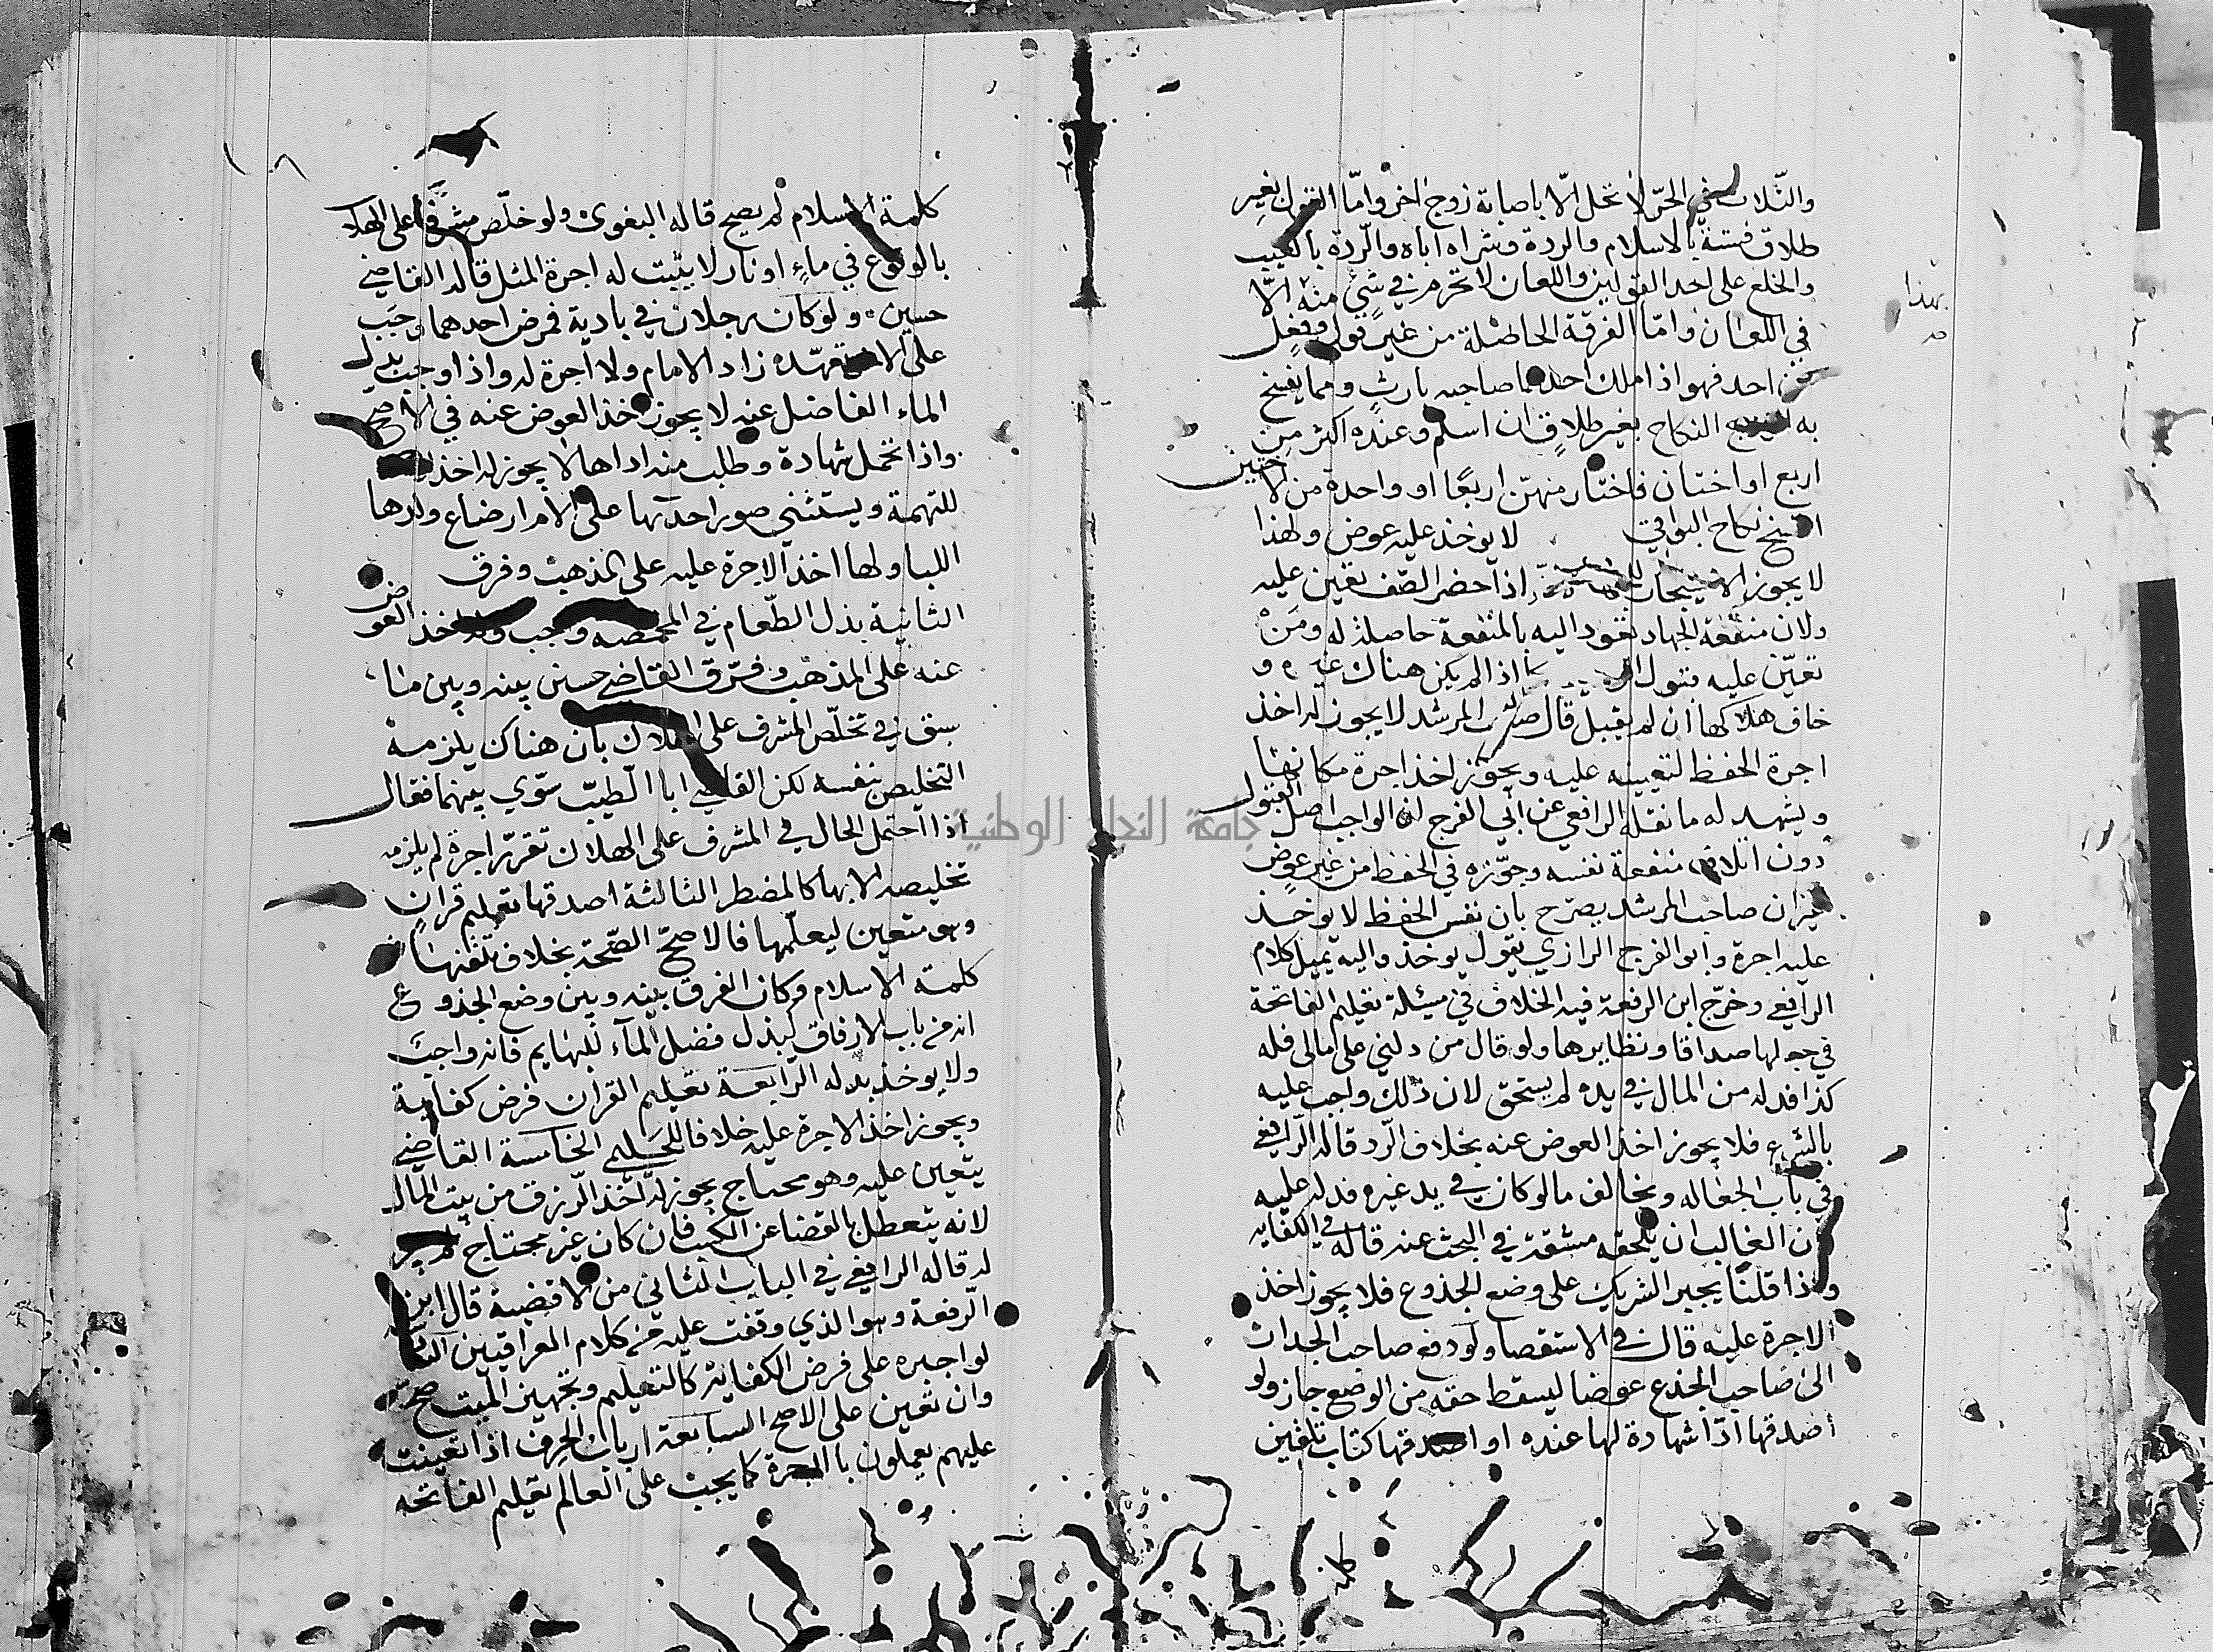 والثلاث في الحر لا تحل الا باصابة زوج اخر واما القول بغير
طلاق فستة بالاسلام والردة وشراه اباه والردة بالعيب
والخلع على احد القولين واللعان لا تحرم في شيء منه الا
في اللعان واما الفرقة الحاصلة من غير قول وفعل
من احد فهو اذا ملك احدهما صاحبه بارث ومما يفسخ
به النكاح بغير طلاق ان اسلم وعنده اكثر من
اربع او اختان فاختار منهن اربعا او واحدة من الاختين
انفسخ نكاح البواقي لا يوخذ عليه عوض ولهذا
لا يجوز الاستيجار اذا حضر الصف تعين عليه
ولان منفعة الجهاد تعود اليه بالمنفعة حاصلة له ومن
تعين عليه قبول اذا لم يكن هناك غيره و
خاف هلاكها ان لم يقبل قال صاحب المرشد لا يجوز له اخذ
اجرة الحفظ لتعينه عليه ويجوز اخذ اجرة مكانها
ويشهد له ما نقله الرافعي عن ابي الفرج ان الواجب اصل القبول
دون اتلاف منفعة نفسه وجوزه في الحفظ من غير عوض
غير ان صاحب المرشد يصرح بان نفس الحفظ لا يوخذ
عليه اجرة وابو الفرج الرازي يقول يوخذ واليه يميل كلام
الرافعي وخرج ابن الرفعة فيه الخلاف في مسئلة تعليم الفاتحة
في جعلها صداقا ونظايرها ولو قال من دلني على مالي فله
كذا فدله من المال في يده لم يستحق لان ذلك واجب عليه
بالشرع فلا يجوز اخذ العوض عنه بخلاف الرد قاله الرافعي
في باب الجعاله ويخالف ما لو كان في يد غيره فدله عليه
لان الغالب ان يلحقه مشقة في البحث عنه قاله في الكفايه
واذا قلنا يجبر الشريك على وضع الجذوع فلا يجوز اخذ
الاجرة عليه قال في الاستقصا ولو دفع صاحب الجدات
الى صاحب الجذع عوضا ليسقط حقه من الوضع جاز ولو
اصدقها اذا شهادة لها عنده او اصدقها كتاب تلقين
بهذا
كلمة الاسلام لم يصح قاله البغوى ولو خلص مشرفا على الهلاك
بالوقوع في ماء او نار لا يثبت له اجرة المثل قاله القاضي
حسين ولو كان رجلان في بادية فمرض احدهما وجب
على الاخر تعهده زاد الامام ولا اجرة له واذا اوجب بذل
الماء الفاضل عنه لا يجوز اخذ العوض عنه في الاصح
واذا تحمل شهادة وطلب منه اداها لا يجوز له اخذ
للتهمة ويستثنى صور احدها على الام ارضاع ولدها
اللبا ولها اخذ الاجرة عليه على المذهب وفرق
الثانية بذل الطعام في المخمصه واجب وله اخذ العوض
عنه على المذهب وفرق القاضي حسين بينه وبين ما
سبق في تخلص المشرف على الهلاك بان هناك يلزمه
التخليص بنفسه لكن القاضي ابا الطيب سوي بينهما فقال
اذا احتمل الحال في المشرف على الهلاك تقرر اجرة لم يلزمه
تخليصه الا بها كالمضطر الثالثة اصدقها تعليم قران
وهو متعين ليعلمها فالاصح الصحة بخلاف تلقنها
كلمة الاسلام وكان الفرق بينه وبين وضع الجذوع
انه من باب الارفاق كبذل فضل الماء للبهايم فانه واجب
ولا يوخذ بدله الرابعة تعليم القران فرض كفاية
ويجوز اخذ الاجرة عليه خلافا للحليمي الخامسة القاضي
يتعين عليه وهو محتاج يجوز له اخذ الرزق من بيت المال
لانه يتعطل بالقضا عن الكسب فان كان غير محتاج لم يجز
له قاله الرافعي في الباب الثاني من الاقضية قال ابن
الرفعة وهو الذي وقفت عليه من كلام العراقيين
لو اجبره على فرض الكفاية كالتعليم وتجهيز الميت صح
وان تعين على الاصح السابعة ارباب الحرف اذا تعينت
عليهم يعملون بالاجرة كما يجب على العالم تعليم الفاتحه
جامعة النجاح الوطنية